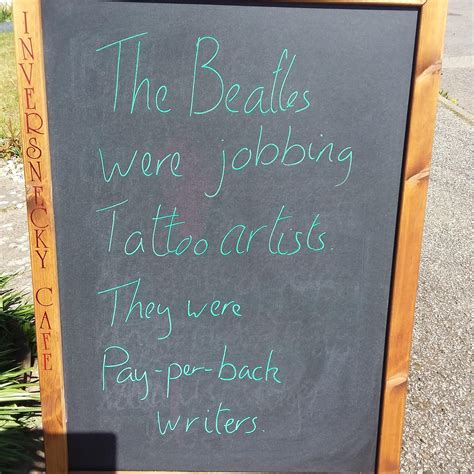 INVERSNECKY CAFE
The Beatles
were jobbing
Tattoo artists.
They were
Pay-per-back
writers.